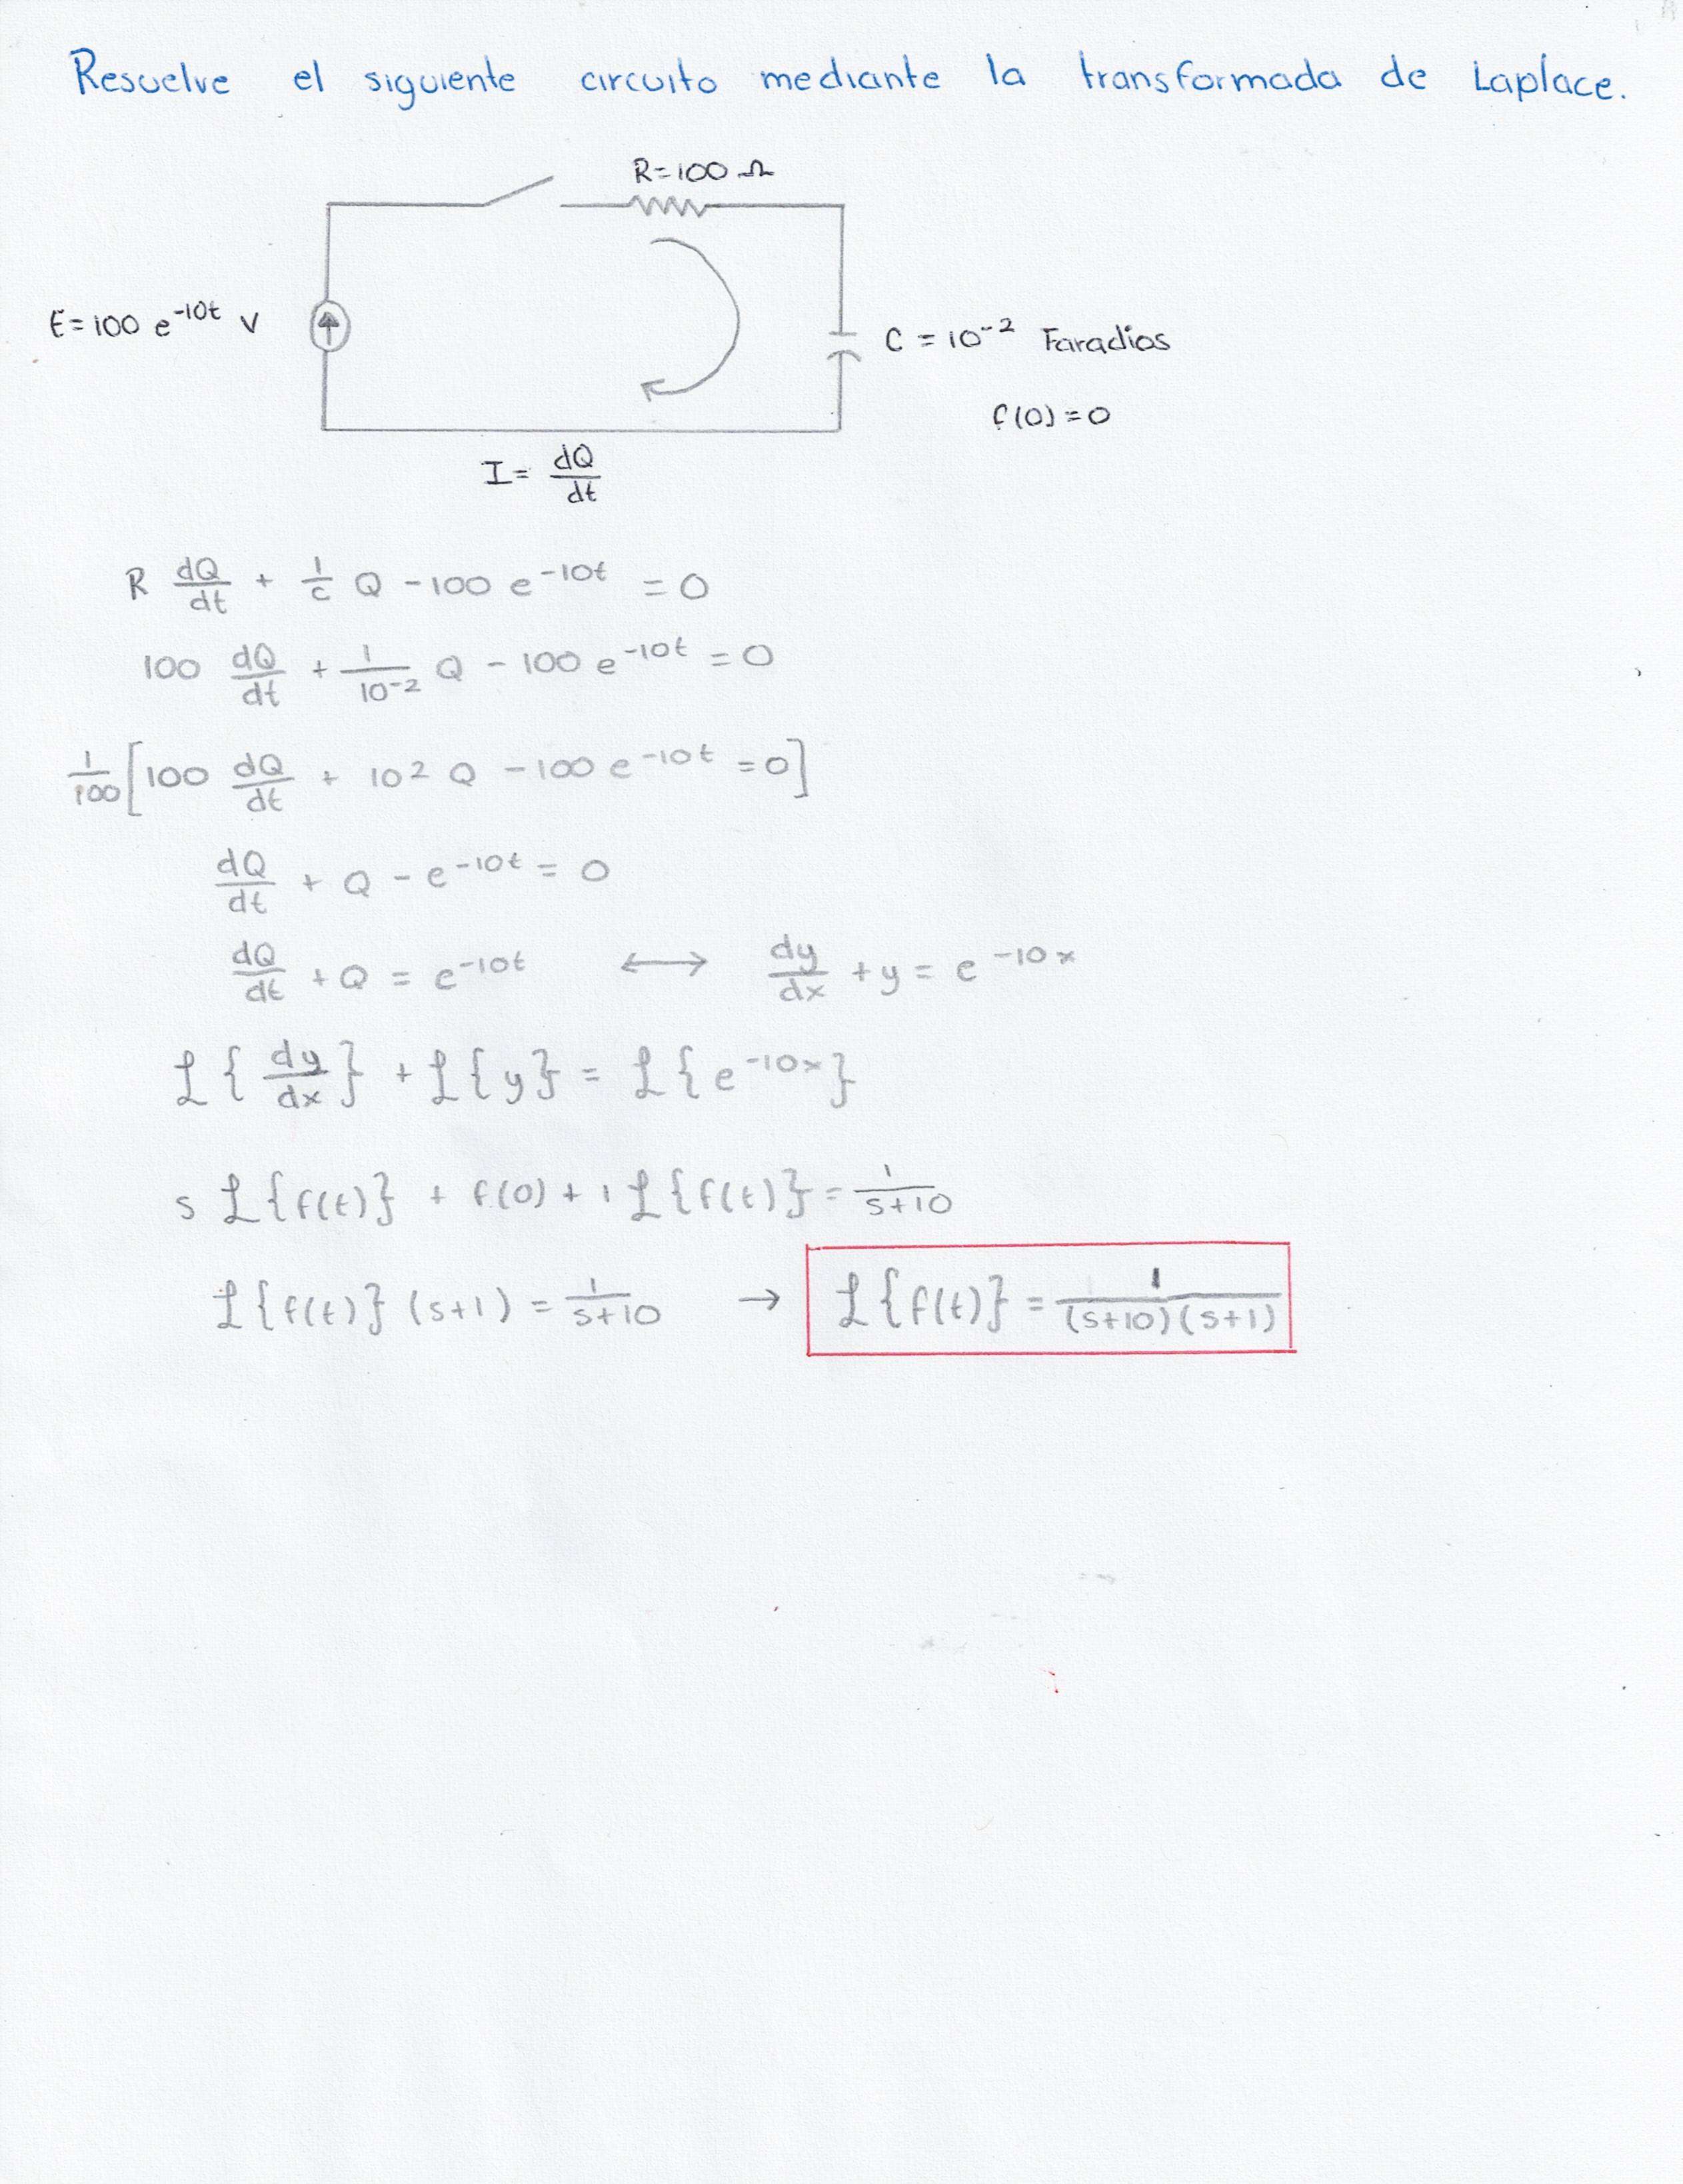 Resuelve el siguiente circuito mediante la transformada de Laplace.
R=100 Ω
E=100 e^-10t V
C = 10^-2 Faradios
f(0)=0
I= dQ/dt
R dQ/dt + 1/c Q - 100 e^-10t = 0
100 dQ/dt + 1/10^-2 Q - 100 e^-10t = 0
1/100 [100 dQ/dt + 10^2 Q - 100 e^-10t = 0]
dQ/dt + Q - e^-10t = 0
dQ/dt + Q = e^-10t ⟷ dy/dx + y = e^-10x
ℒ{dy/dx} + ℒ{y} = ℒ{e^-10x}
s ℒ{f(t)} + f(0) + 1 ℒ{f(t)} = 1/s+10
ℒ{f(t)} (s+1) = 1/s+10 → ℒ{f(t)} = 1/(s+10)(s+1)